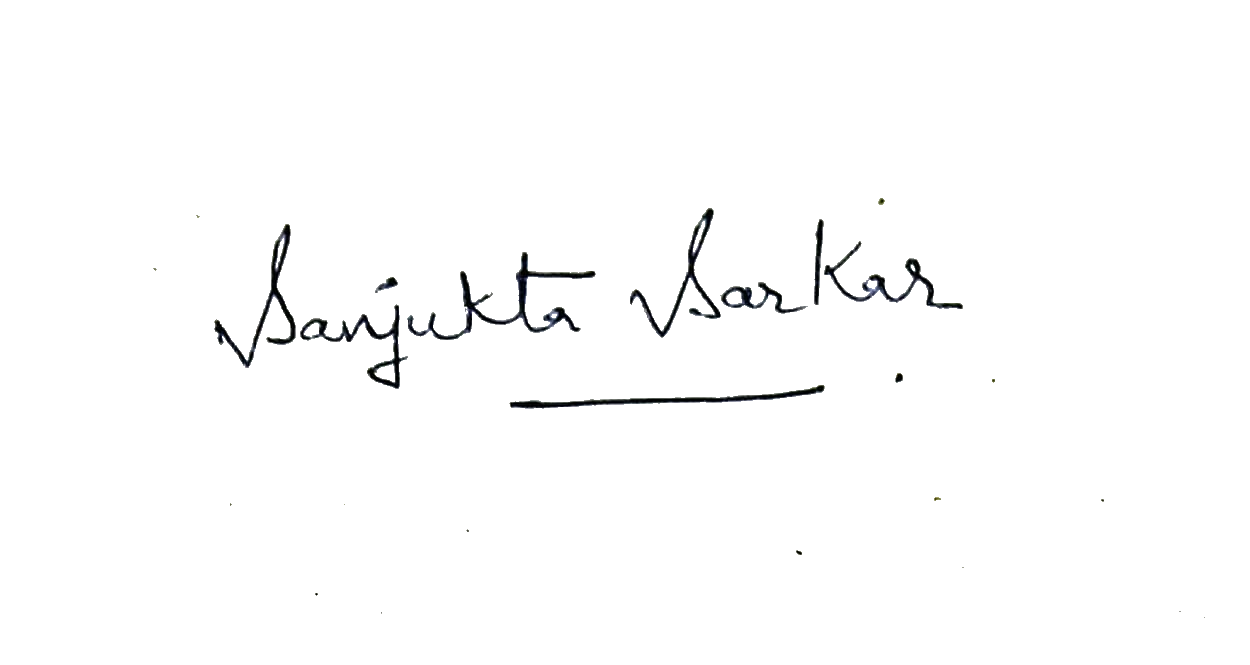 Sanjukta Sarkar